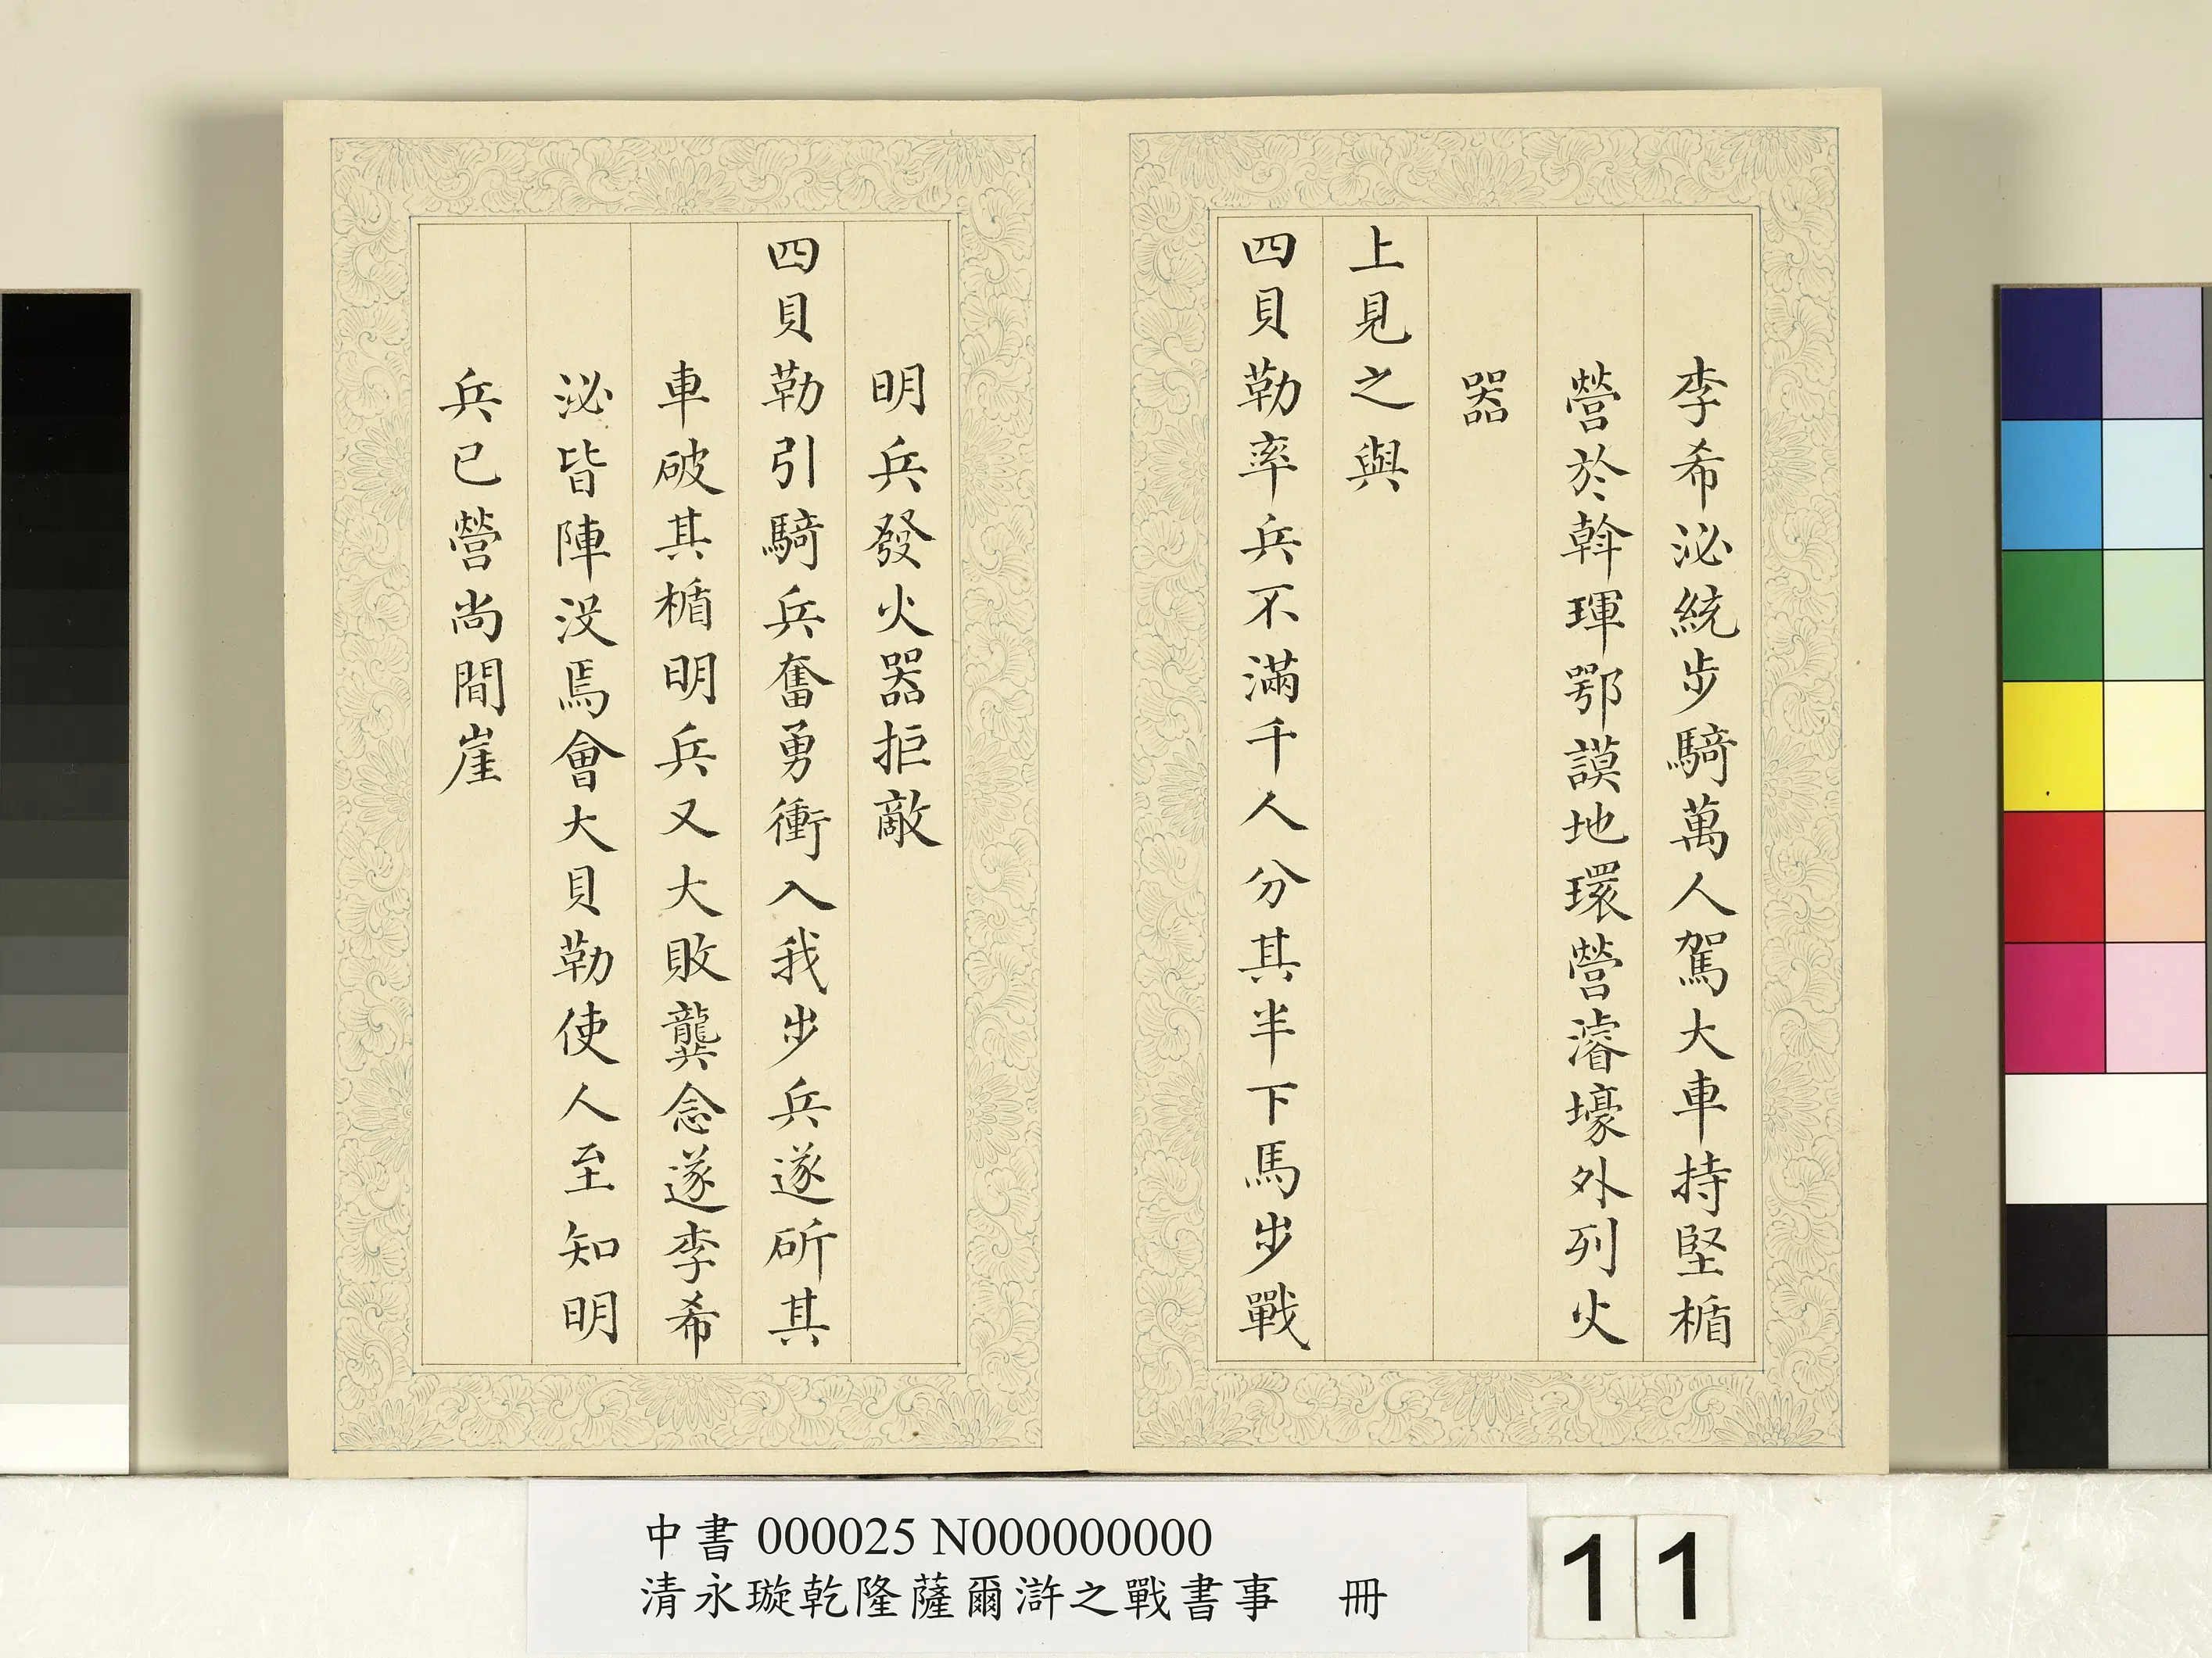 李希泌統步騎萬人駕大車持堅楯
營於斡琿鄂謨地環營濬壕外列火
器
上見之與
四貝勒率兵不滿千人分其半下馬步戰
明兵發火器拒敵
四貝勒引騎兵奮勇衝入我步兵遂斫其
車破其楯明兵又大敗龔念遂李希
泌皆陣沒焉會大貝勒使人至知明
兵已營尚間崖
中書 000025 N000000000
清永璇乾隆薩爾滸之戰書事 冊
11